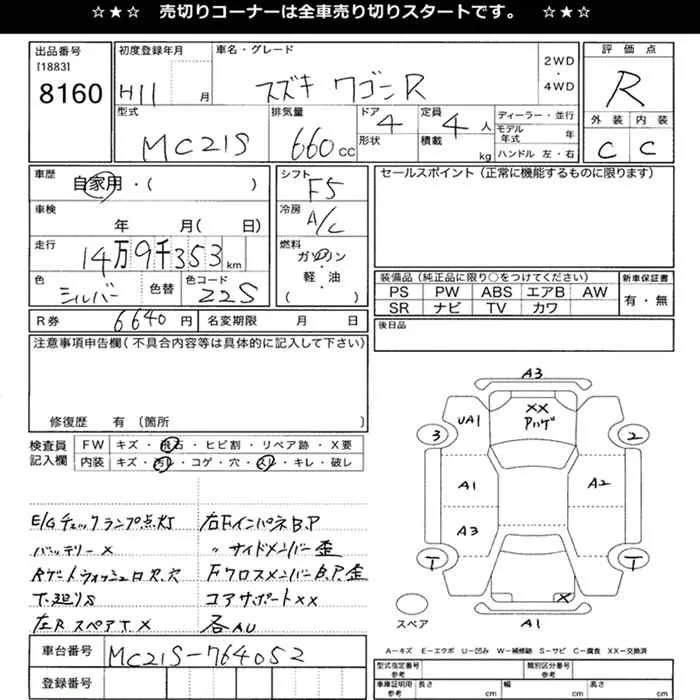 ☆★☆ 売切りコーナーは全車売り切りスタートです。 ☆★☆
出品番号 初度登録年月 車名・グレード 2WD・4WD 評価点
[1883]
8160 H11 月 スズキ ワゴンR R
型式 排気量 ドア 定員 ディーラー・並行 外装 内装
MC21S 660cc 4 4人 モデル年式 年 C C
形状 積載 kg ハンドル 左・右
車歴 シフト セールスポイント(正常に機能するものに限ります)
自家用・( ) F5
車検 冷房
年 月( 日) A/C
走行 燃料
14万9千353km ガソリン・軽・油
( )
色 色替 色コード
シルバー 22S
装備品(純正品に限り○をつけてください) 新車保証書
PS PW ABS エアB AW 有・無
SR ナビ TV カワ
R券 6640円 名変期限 月 日 後日品
注意事項申告欄(不具合内容等は具体的に記入して下さい)
修復歴 有(箇所 )
検査員記入欄 FW キズ・飛石・ヒビ割・リペア跡・X要
内装 キズ・汚レ・コゲ・穴・スレ・キレ・破レ
E/Gチェックランプ点灯 右FインパネB.P
バッテリーX 〃サイドメンバー歪
Rゲートウォッシュロ穴 FクロスメンバーB.P.歪
T.廻りS コアサポートXX
左RスペアT.X 各AU
車台番号 MC21S-764052
登録番号
A3
XX
アハゲ
UA1
3 2
A1 A2
A3
T T
X
スペア A1
A-キズ E-エクボ U-凹み W-補修跡 S-サビ C-腐食 XX-交換済
型式指定番号 参考 類別区分番号 参考
車庫証明用 参考 長さ cm 幅 cm 高さ cm